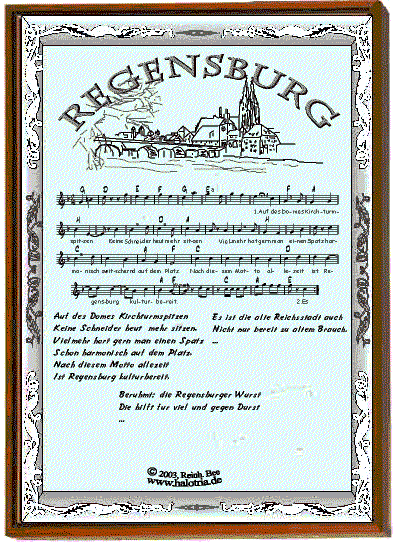 REGENSBURG
G D E F G E F A
1. Auf des Do-mes Kirch-turm-
H D A H
spit-zen Keine Schneider heut mehr sit-zen Viel mehr hört gern man ei-nen Spatz har-
C F C D
mo-nisch zwit-schernd auf dem Platz Nach die-sem Mot-to al-le-zeit ist Re-
A F C E F G
gens-burg kul-tur-be-reit. 2. Es
Auf des Domes Kirchturmspitzen
Keine Schneider heut mehr sitzen.
Vielmehr hört gern man einen Spatz
Schon harmonisch auf dem Platz.
Nach diesem Motto allezeit
Ist Regensburg kulturbereit.
Es ist die alte Reichsstadt auch
Nicht nur bereit zu altem Brauch.
...
Berühmt: die Regensburger Wurst
Die hilft für viel und gegen Durst
...
© 2003, Reinh. Bee
www.halotria.de